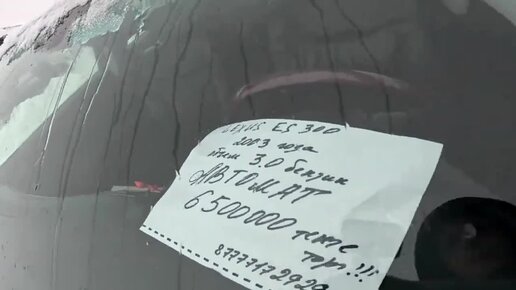 LEXUS ES 300
2003 года
объем 3.0 бензин
АВТОМАТ
6500000 тенге
торг!!!
87777172929